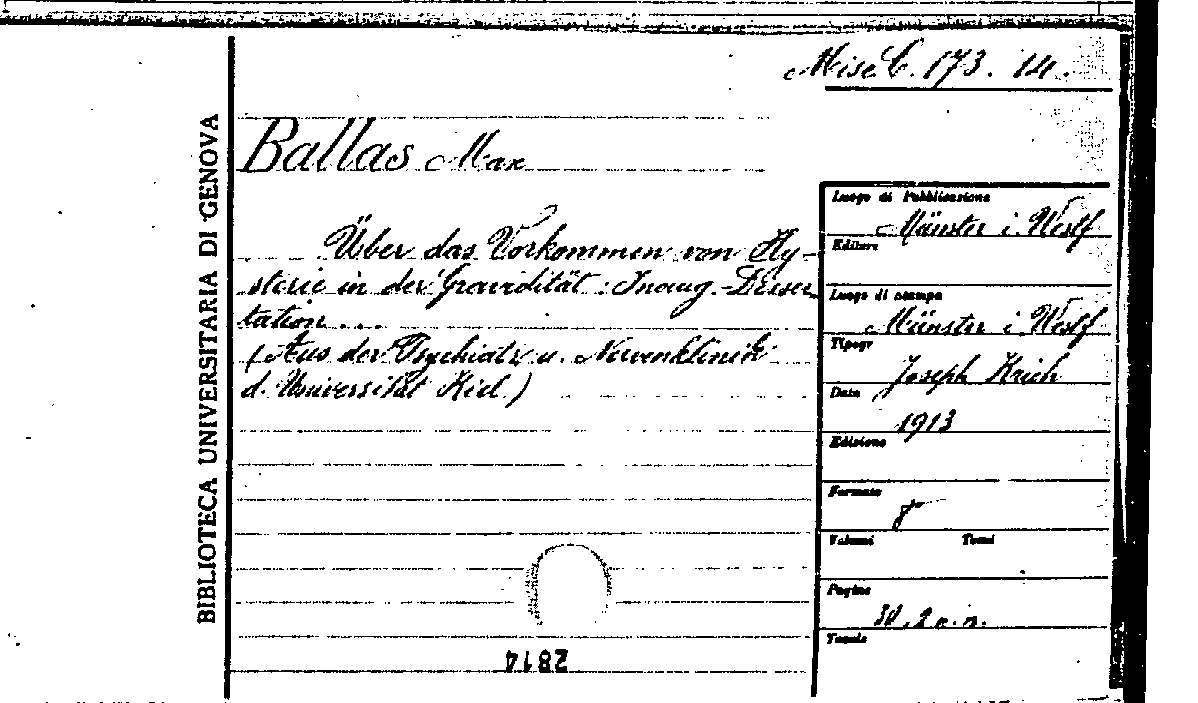 Misc. C. 173. 14.
BIBLIOTECA UNIVERSITARIA DI GENOVA
Ballas Max
Über das Vorkommen von Hy-
sterie in der Gravidität: Inaug.-Disser
tation...
(Aus der Psychiatr. u. Nervenklinik
d. Universität Kiel)
Luogo di Pubblicazione
Münster i. Westf
Editore
Luogo di stampa
Münster i. Westf
Tipogr
Joseph Krich
Data
1913
Edizione
Formato
8°
Volumi Tomi
Pagine
2 n. n.
Tavole
2814